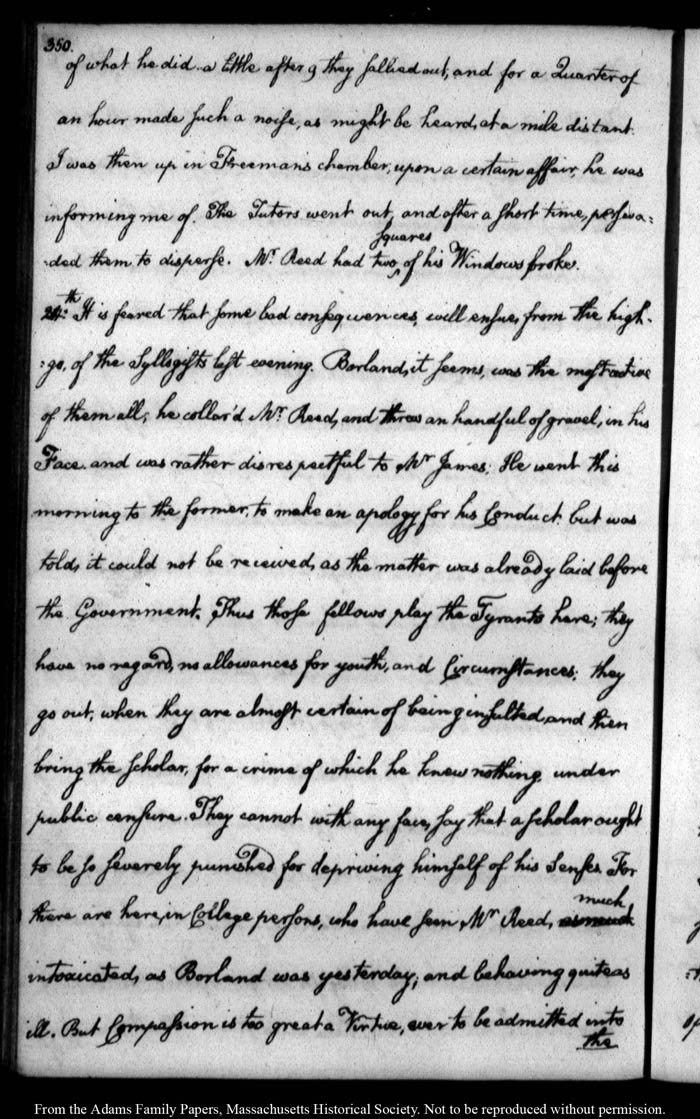 350.
of what he did a little after 9 they sallied out, and for a Quarter of
an hour made such a noise, as might be heard, at a mile distant.
I was then up in Freeman's chamber, upon a certain affair, he was
informing me of. The Tutors went out, and after a short time, perswa=
squares
=ded them to disperse. Mr. Reed had two of his Windows broke.
24th. It is feared that some bad consequences, will ensue, from the high-
=go, of the Syllogists last evening. Borland, it seems, was the most active
of them all; he collar'd Mr. Reed, and threw an handful of gravel, in his
Face. and was rather disrespectful to Mr James; He went this
morning to the former, to make an apology for his Conduct, but was
told, it could not be received, as the matter was already laid before
the Government. Thus those fellows play the Tyrants here; they
have no regard, no allowances for youth, and Circumstances; they
go out, when they are almost certain of being insulted, and then
bring the scholar, for a crime of which he knew nothing under
public censure. They cannot with any face, say that a scholar ought
to be so severely punished for depriving himself of his Senses. For
much
there are here, in College persons, who have seen, Mr Reed, as much
intoxicated, as Borland was yesterday; and behaving quite as
ill. But Compassion is too great a Virtue, ever to be admitted into
the
From the Adams Family Papers, Massachusetts Historical Society. Not to be reproduced without permission.